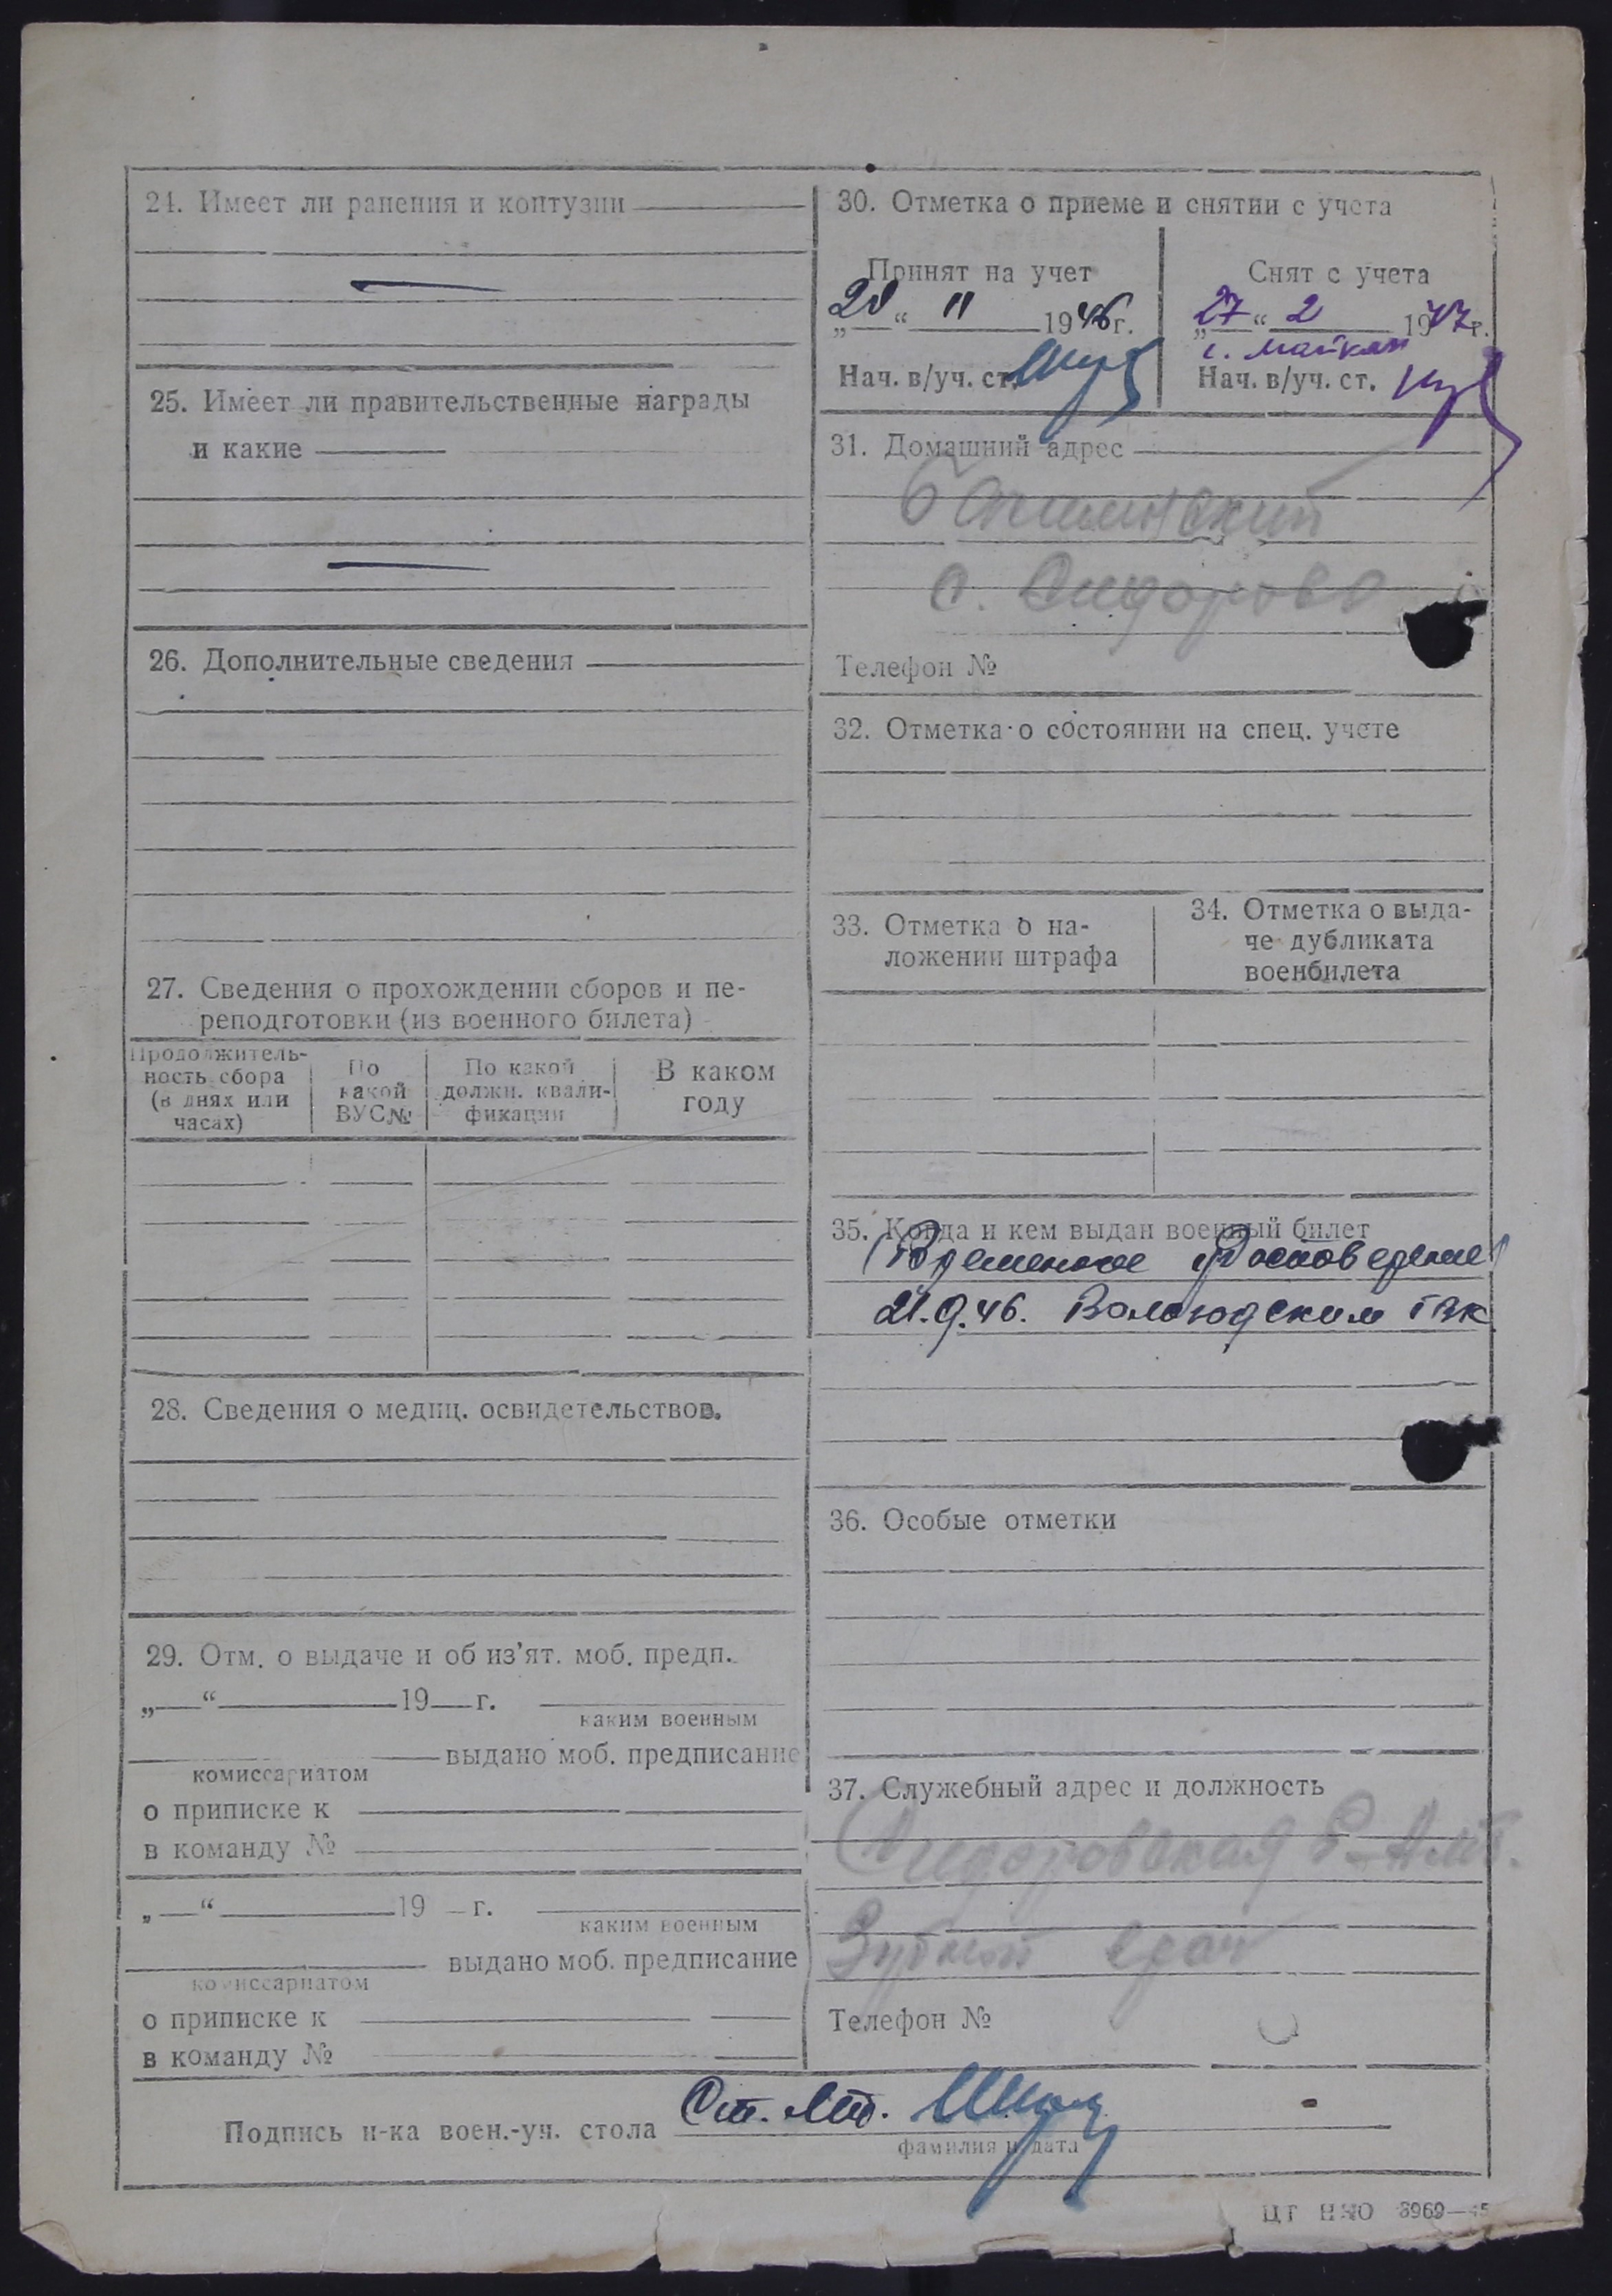 24. Имеет ли ранения и контузии
25. Имеет ли правительственные награды
и какие
26. Дополнительные сведения
27. Сведения о прохождении сборов и пе-
реподготовки (из военного билета)
Продолжитель-
ность сбора
(в днях или
часах)
По
какой
ВУС№
По какой
должн. квали-
фикации
В каком
году
28. Сведения о медиц. освидетельствов.
29. Отм. о выдаче и об из’ят. моб. предп.
„ “ 19 г.
каким военным
выдано моб. предписание
комиссариатом
о приписке к
в команду №
„ “ 19 г.
каким военным
выдано моб. предписание
комиссариатом
о приписке к
в команду №
30. Отметка о приеме и снятии с учета
Принят на учет
„ “ 11 1946 г.
Нач. в/уч. ст.
Снят с учета
„27“ 2 1947 г.
Нач. в/уч. ст.
31. Домашний адрес
с. Сидорово
Телефон №
32. Отметка о состоянии на спец. учете
33. Отметка о на-
ложении штрафа
34. Отметка о выда-
че дубликата
военбилета
35. Когда и кем выдан военный билет
Временное
21.9.46. Вологодским ГВК
36. Особые отметки
37. Служебный адрес и должность
Сидоровская Р-Амб.
Зубной врач
Телефон №
Подпись н-ка воен.-уч. стола Ст. Лт.
фамилия и дата
ЦТ НКО 3969—45